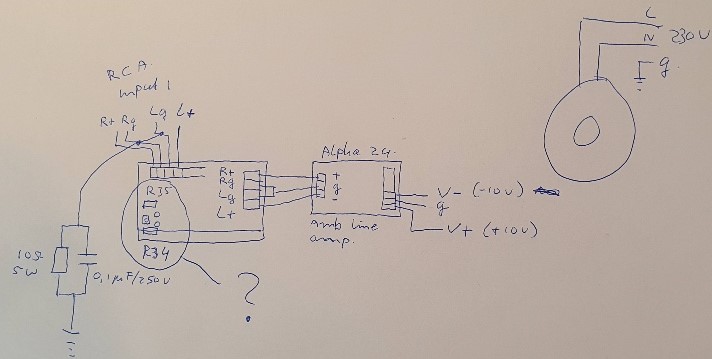 L
N
230V
g
RCA
input 1
R+ Rg Lg L+
Alpha 24
R+
Rg
Lg
L+
+
g
-
R35
R34
V- (-10V)
g
V+ (+10V)
Amb line
amp.
10Ω
5W
0,1µF/250V
?